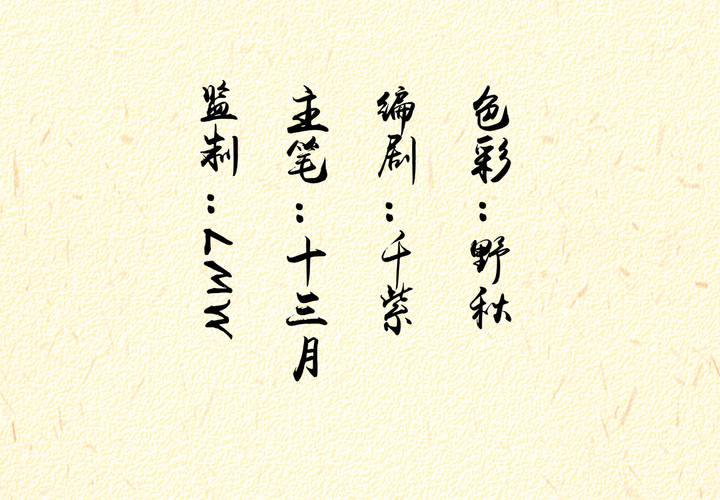 色彩：野秋
编剧：千紫
主笔：十三月
监制：